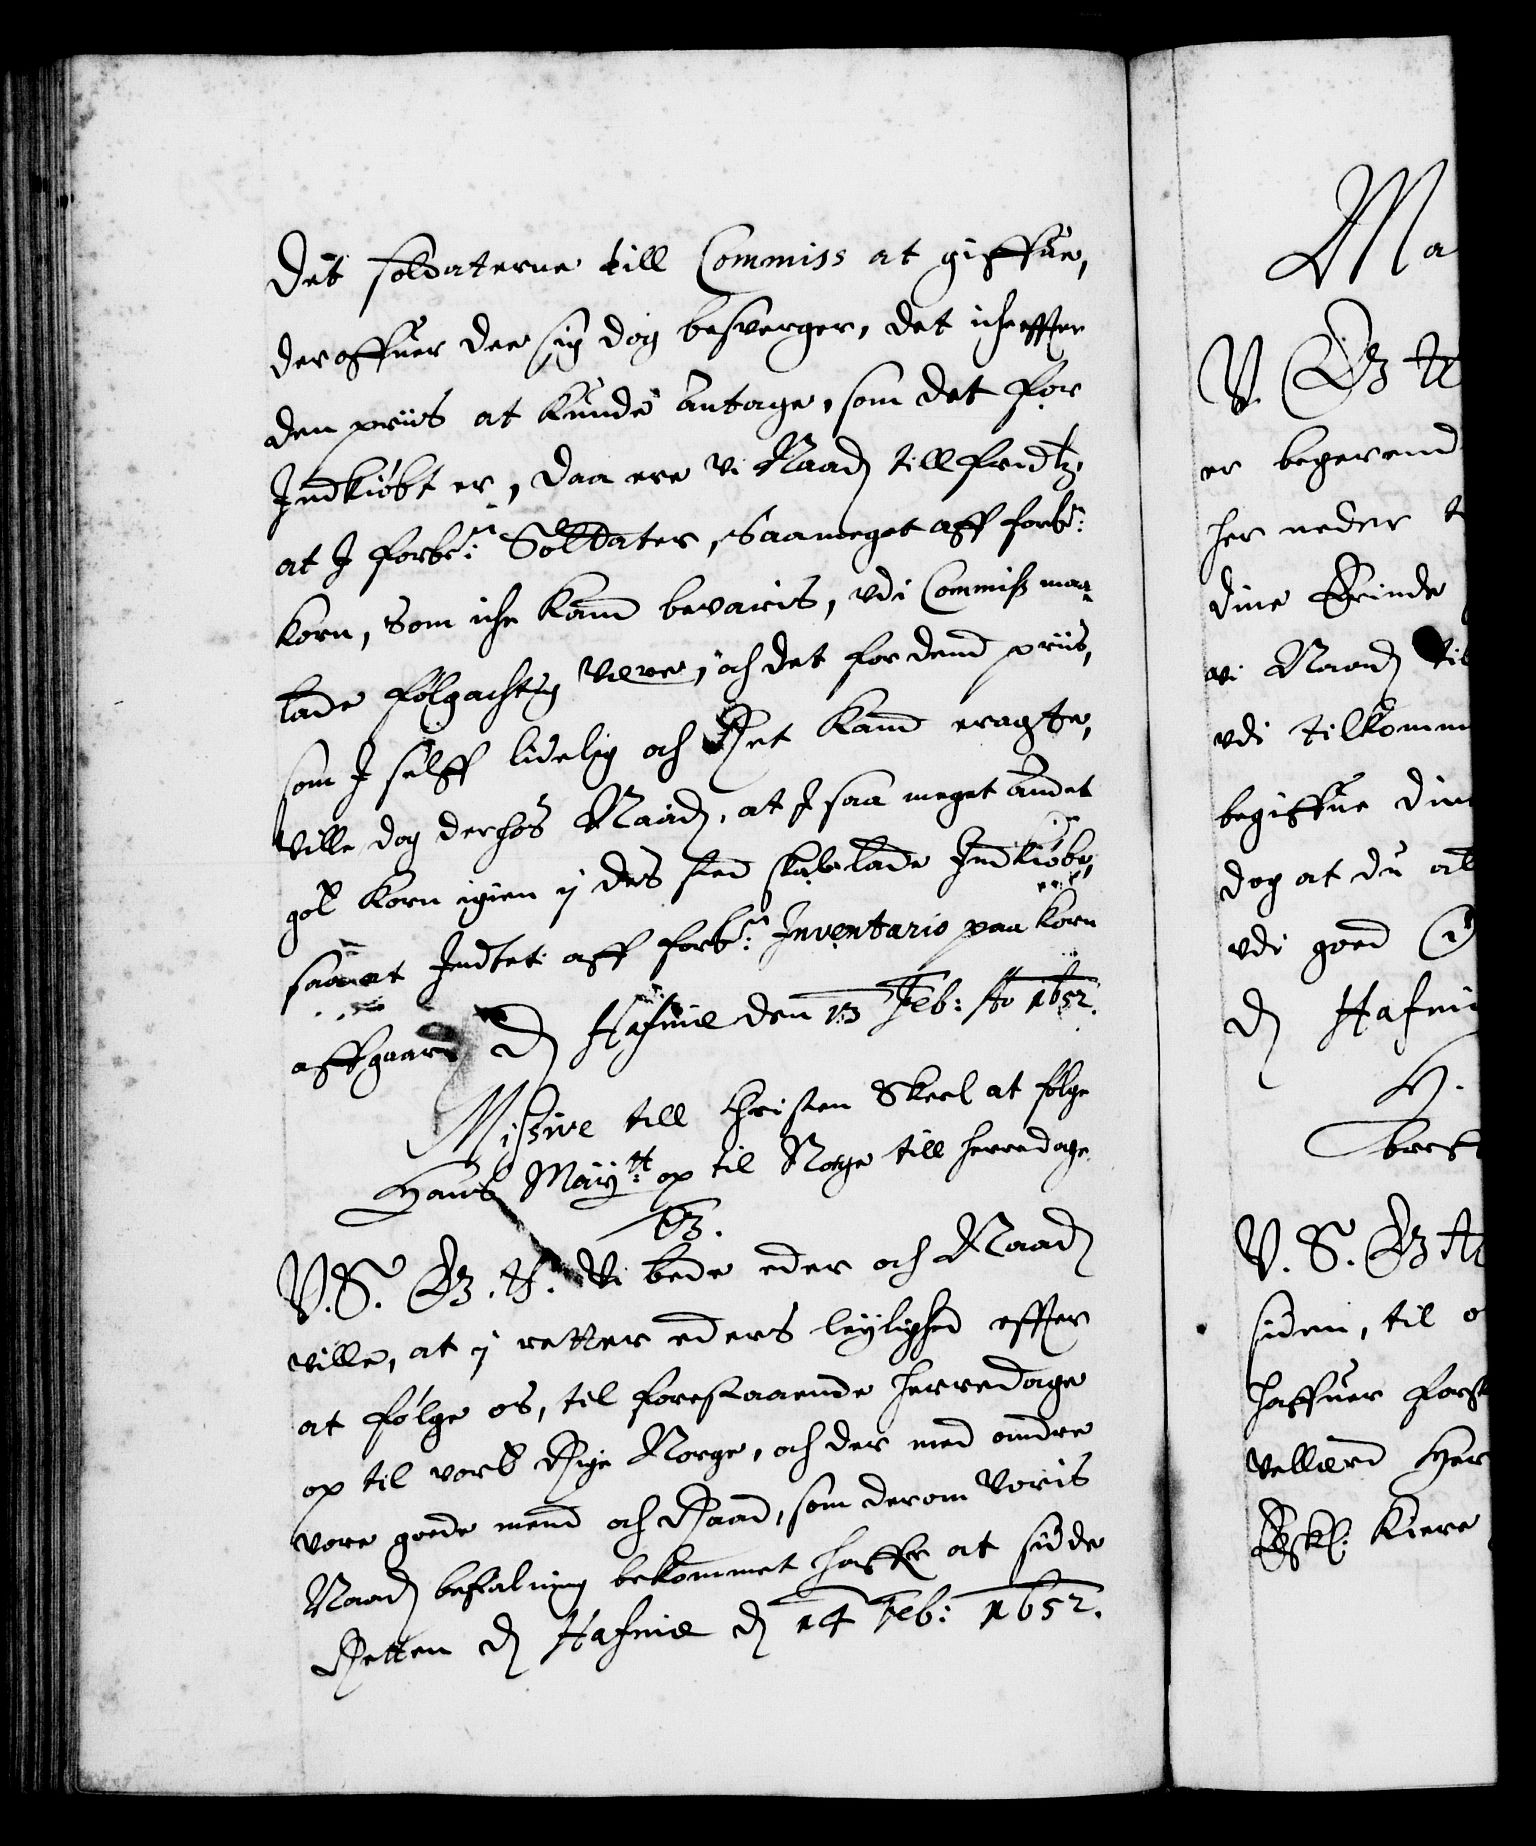 det soldaterne till Commiss at giffue,
deroffuer dee sig dog besverger, det iche effter
den priis at kunde Antage, som det for
Indkiøbt er, daa ere vi Naad. tillfredtz,
at J forbe:te Soldater, saameget aff forbe:te
korn, som iche kand bevaris, vdi Commiss maa
lade følgachtig være, och det for dend priis,
som J sielff lidelig och Ret kand eragte,
Ville dog derhos Naad. at J saa meget Andet
got korn igien i des sted skal lade Indkiøbe,
saa at Indtet aff forbe:te Inventario paa korn
affgaar D. Hafniæ den 13 Feb: Ao 1652.
Missive till Christen Skeel at følge
Hans May:tt op til Norge till herredage
C3.
V. S. G3. A. Vi bede eder och Naad.
ville, at i retter eders leyligched effter
at følge os, til forestaaende herredage
op til vort Rige Norge, och der med andre
vore goede mend och Raad, som derom Voris
Naad. befalning bekommet haffr at sidde
Retten D. Hafniæ d. 14 Feb: 1652.
Ma
V. G3 A
er begerend
her neder t
dine Erinde
vi Naad. til
vdi tilkomm
begiffue din
dog at du al
vdi goed
D. Hafni
V. S. G3 A
siden, til o
haffuer forst
Vellærd Her
Kiere